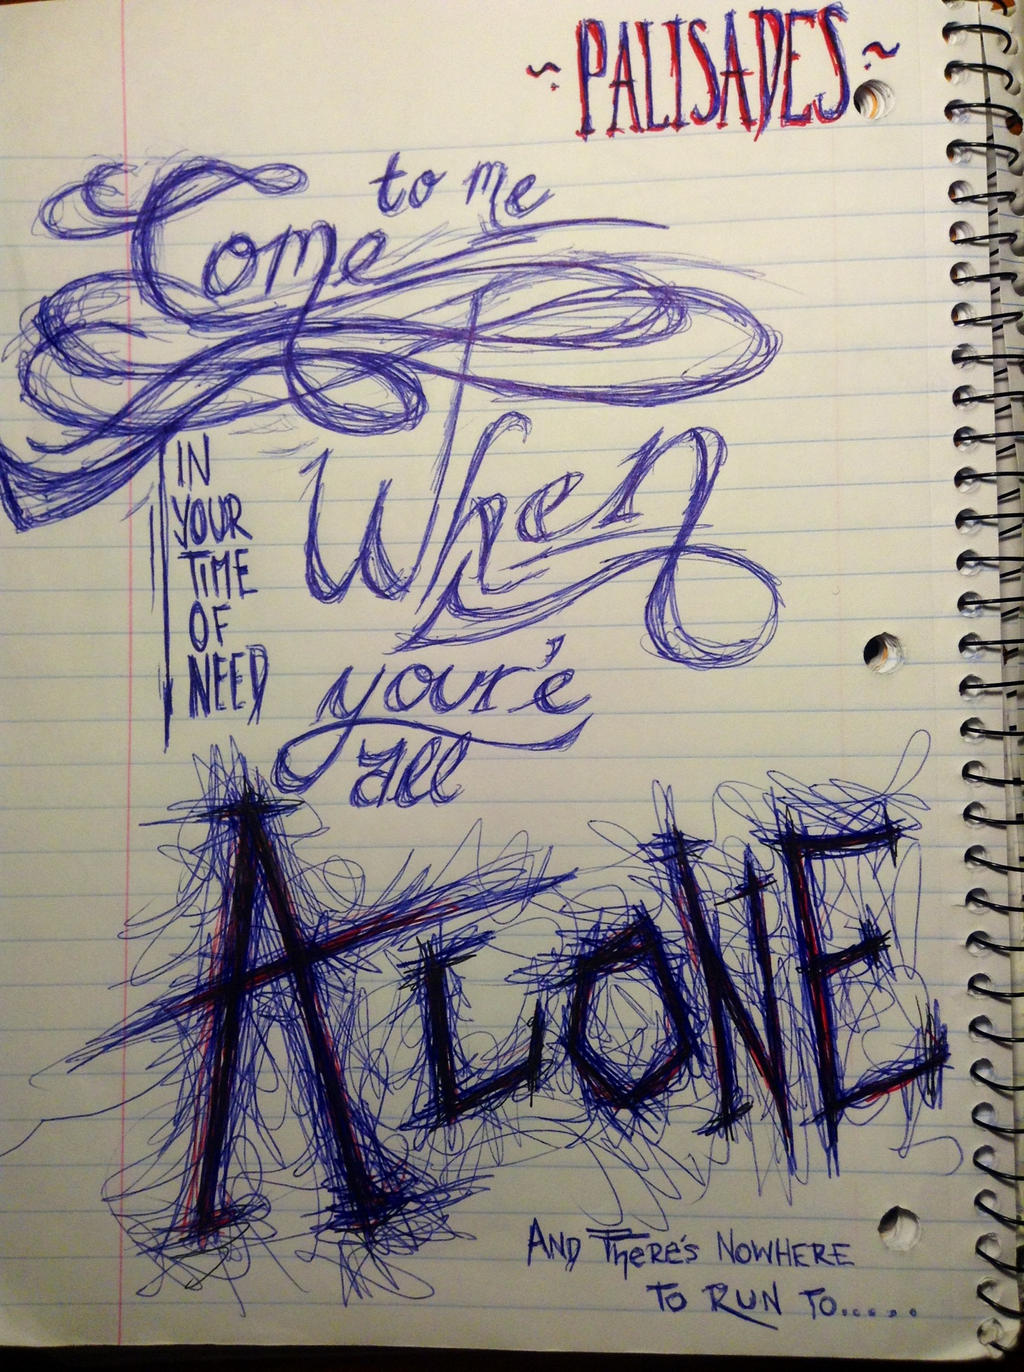 ~PALISADES~
Come to me
IN
YOUR
TIME
OF
NEED
When
your'e
all
ALONE
AND THERE'S NOWHERE
TO RUN TO.....